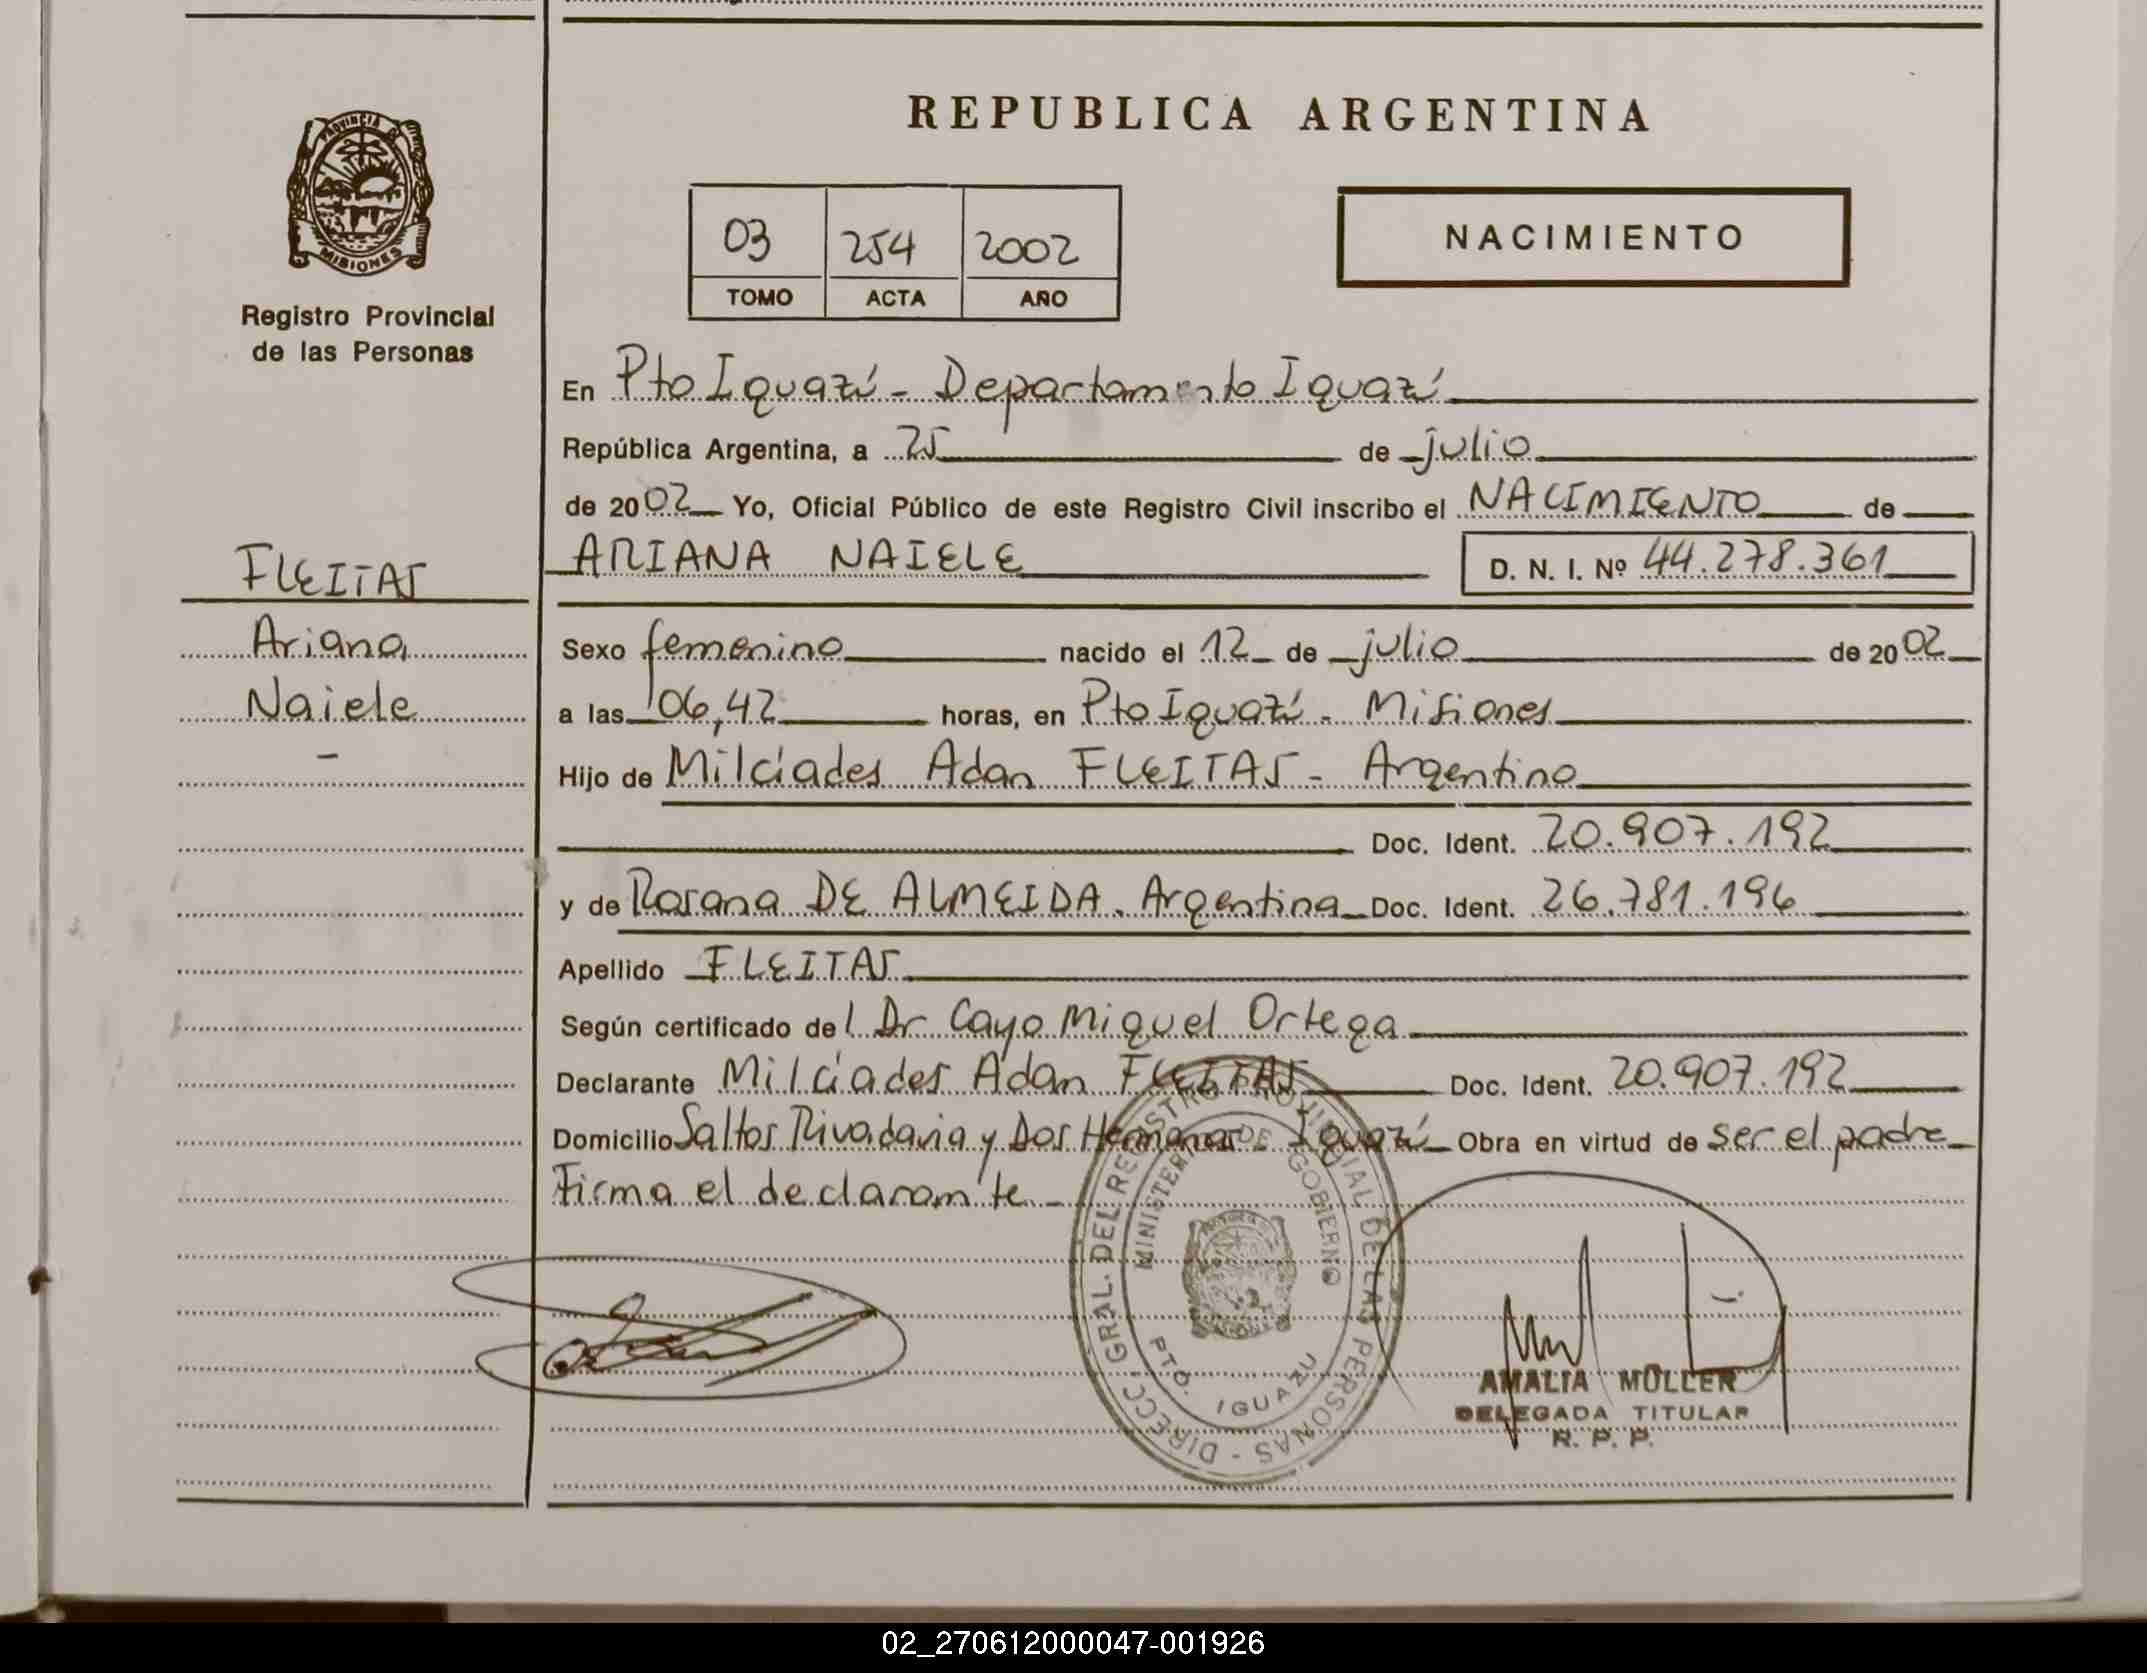 PROVINCIA DE
MISIONES
Registro Provincial
de las Personas
FLEITAS
Ariana
Naiele
-
REPUBLICA ARGENTINA
03 254 2002
TOMO ACTA AÑO
NACIMIENTO
En Pto Iguazú - Departamento Iguazú
República Argentina, a 25 de julio
de 2002 Yo, Oficial Público de este Registro Civil inscribo el NACIMIENTO de
ARIANA NAIELE D. N. I. Nº 44.278.361
Sexo femenino nacido el 12 de julio de 2002
a las 06,42 horas, en Pto Iguazú - Misiones
Hijo de Milcíades Adan FLEITAS - Argentino
Doc. Ident. 20.907.192
y de Rosana DE ALMEIDA. Argentina Doc. Ident. 26.781.196
Apellido FLEITAS
Según certificado del Dr Cayo Miguel Ortega
Declarante Milcíades Adan FLEITAS Doc. Ident. 20.907.192
Domicilio Saltos Rivadavia y Dos Hermanas - Iguazú Obra en virtud de ser el padre
Firma el declarante -
DIRECC. GRAL. DEL REGISTRO PROVINCIAL DE LAS PERSONAS -
MINISTERIO DE GOBIERNO
PTO. IGUAZU
AMALIA MÜLLER
DELEGADA TITULAR
R. P. P.
02_270612000047-001926